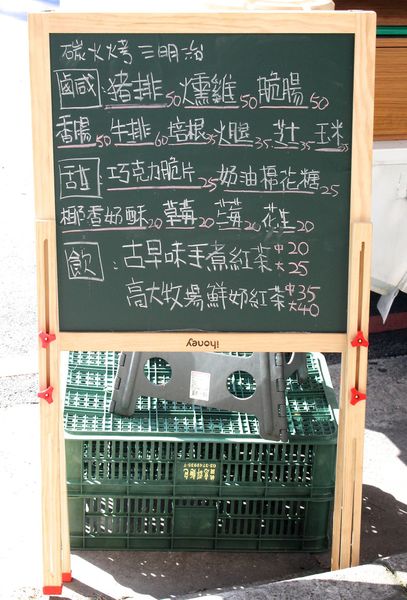 碳火烤三明治
鹹 豬排50 燻雞50 脆腸50
香腸50 牛排60 培根35 火腿35 芝士35 玉米35
甜 巧克力脆片25 奶油棉花糖25
椰香奶酥20 草莓20 藍莓20 花生20
飲：古早味手煮紅茶 中20 大25
高大牧場鮮奶紅茶 中35 大40
ihoney